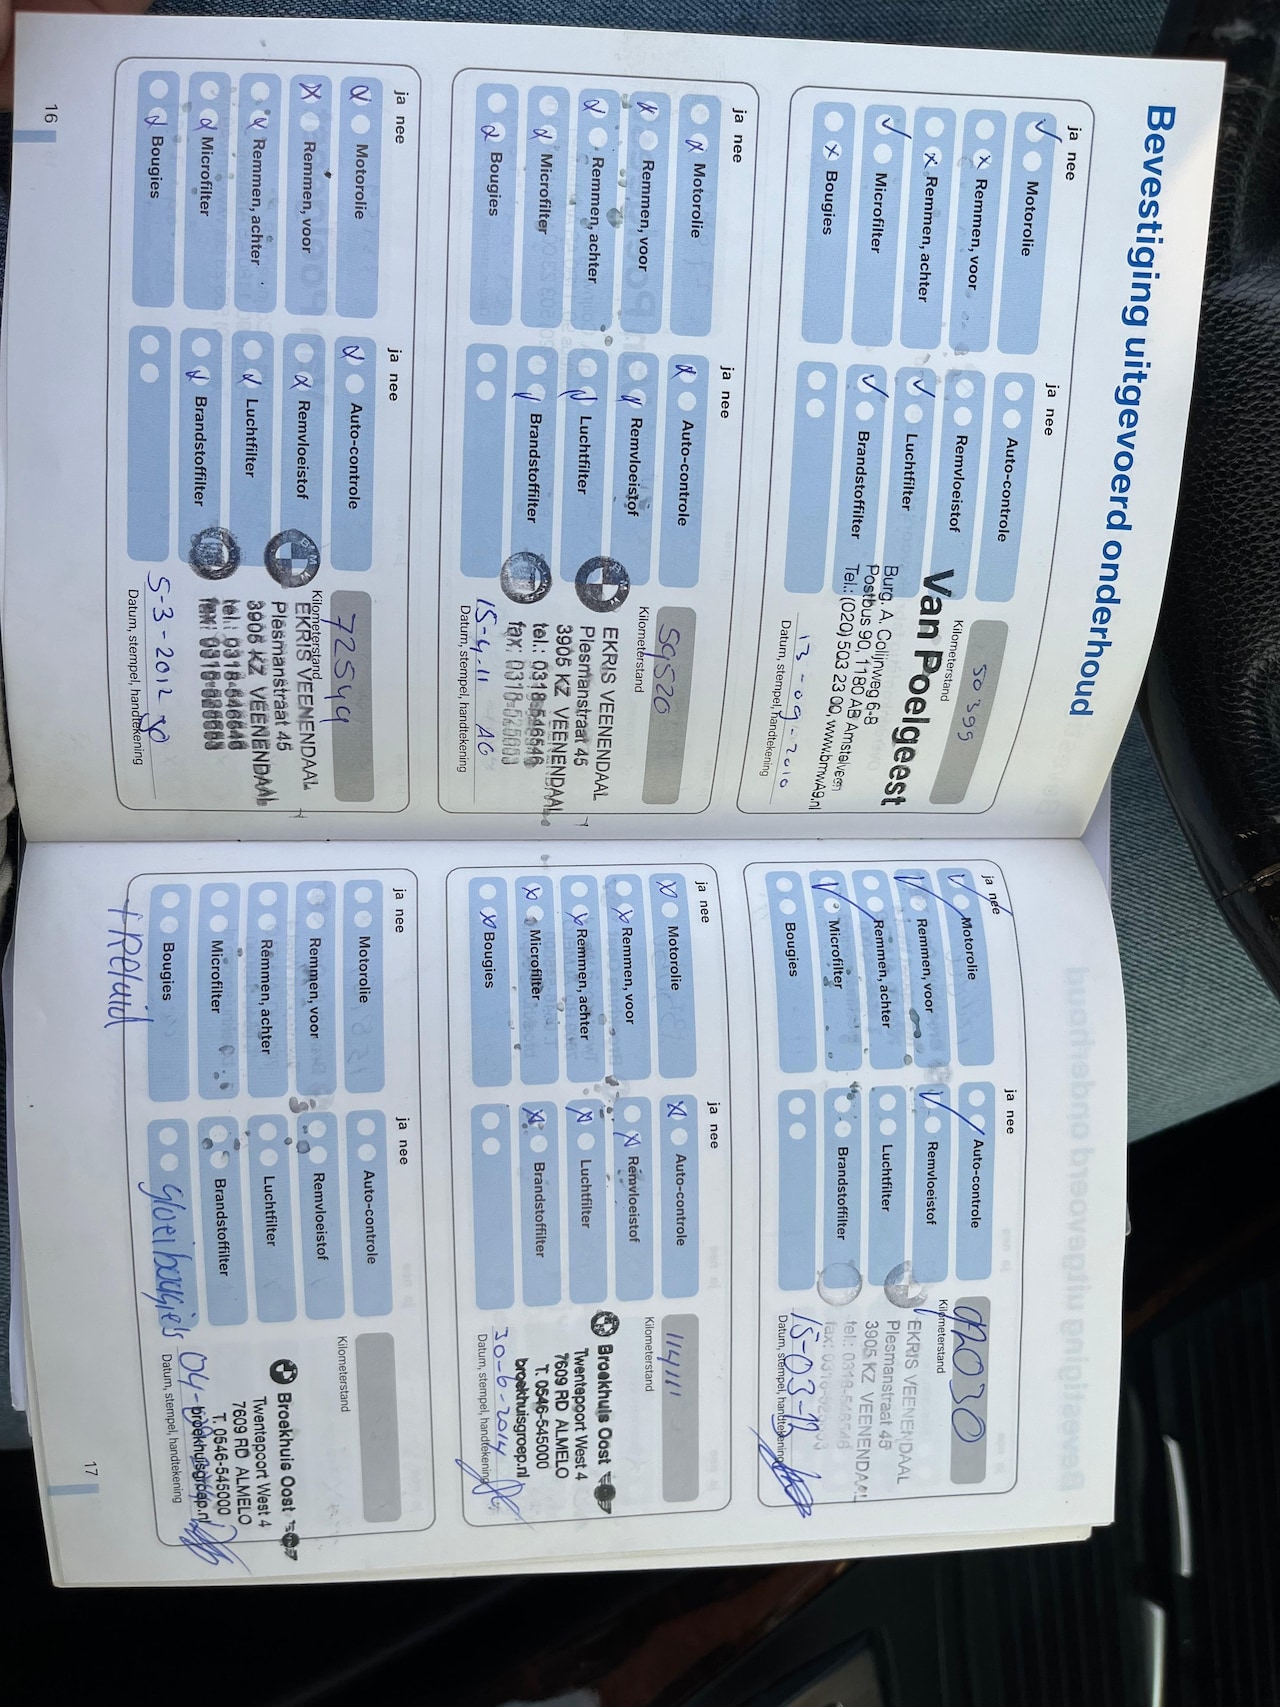 Bevestiging uitgevoerd onderhoud
ja nee
Motorolie
Remmen, voor
Remmen, achter
Microfilter
Bougies
ja nee
Auto-controle
Remvloeistof
Luchtfilter
Brandstoffilter
50395
Kilometerstand
Van Poelgeest
Burg. A. Colijnweg 6-8
Postbus 90, 1180 AB Amstelveen
Tel.: (020) 503 23 00, www.bmwA9.nl
13-09-2010
Datum, stempel, handtekening
ja nee
Motorolie
Remmen, voor
Remmen, achter
Microfilter
Bougies
ja nee
Auto-controle
Remvloeistof
Luchtfilter
Brandstoffilter
59520
Kilometerstand
EKRIS VEENENDAAL
Plesmanstraat 45
3905 KZ VEENENDAAL
tel.: 0318-546546
fax: 0318-529093
15-4-11 AG
Datum, stempel, handtekening
ja nee
Motorolie
Remmen, voor
Remmen, achter
Microfilter
Bougies
ja nee
Auto-controle
Remvloeistof
Luchtfilter
Brandstoffilter
72544
Kilometerstand
EKRIS VEENENDAAL
Plesmanstraat 45
3905 KZ VEENENDAAL
tel.: 0318-546546
fax: 0318-529093
5-3-2012
Datum, stempel, handtekening
16
ja nee
Motorolie
Remmen, voor
Remmen, achter
Microfilter
Bougies
ja nee
Auto-controle
Remvloeistof
Luchtfilter
Brandstoffilter
92030
Kilometerstand
EKRIS VEENENDAAL
Plesmanstraat 45
3905 KZ VEENENDAAL
tel.: 0318-546546
fax: 0318-529093
Datum, stempel, handtekening
ja nee
Motorolie
Remmen, voor
Remmen, achter
Microfilter
Bougies
ja nee
Auto-controle
Remvloeistof
Luchtfilter
Brandstoffilter
114111
Kilometerstand
Broekhuis Oost
Twentepoort West 4
7609 RD ALMELO
T. 0546-545000
broekhuisgroep.nl
30-6-2014
Datum, stempel, handtekening
ja nee
Motorolie
Remmen, voor
Remmen, achter
Microfilter
Bougies
ja nee
Auto-controle
Remvloeistof
Luchtfilter
Brandstoffilter
gloeibougies
Kilometerstand
Broekhuis Oost
Twentepoort West 4
7609 RD ALMELO
T. 0546-545000
broekhuisgroep.nl
Datum, stempel, handtekening
17